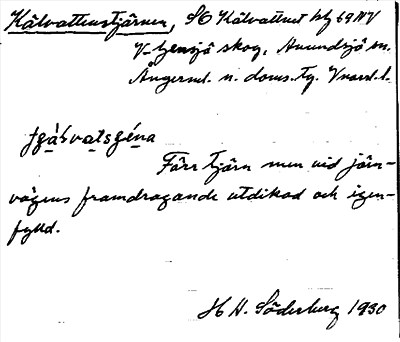 Kälvattenstjärnen, SO Kälvattnet bl 69 NV
V-Gensjö skog, Anundsjö sn.
Ångerml. n. doms. Tg. Vnorrl. l.
Förr tjärn men vid järn-
vägens framdragande utdikad och igen-
fylld.
H N. Söderberg 1930